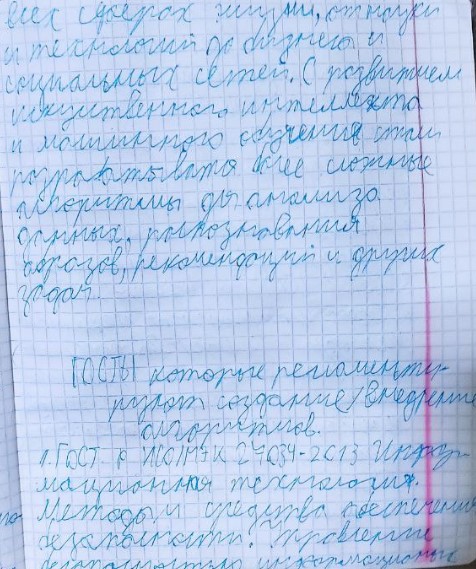 всех сферах жизни, от науки
и технологий до бизнеса и
социальных сетей. С развитием
искуственного интеллекта
и машинного обучения стали
разрабатыватся более сложные
алгоритмы для анализа
данных, распознавания
образов, рекомендаций и других
задач.
ГОСТЫ которые регламенти-
руют создание/внедрение
алгоритмов.
1. ГОСТ Р ИСО/МЭК 27034-2013 Инфор-
мационная технология.
Методы и средства обеспечения
безопасности.
информационных